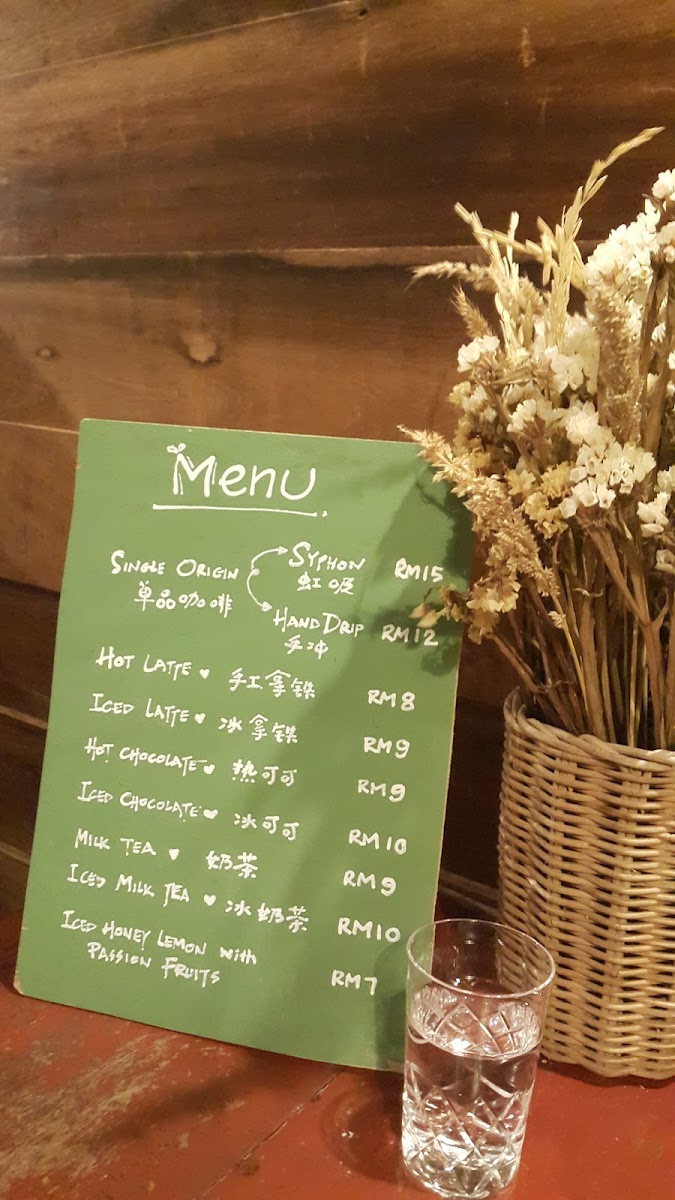 Menu
SINGLE ORIGIN SYPHON RM15
单品咖啡 虹吸
HAND DRIP RM12
手冲
HOT LATTE 手工拿铁 RM8
ICED LATTE 冰拿铁 RM9
HOT CHOCOLATE 热可可 RM9
ICED CHOCOLATE 冰可可 RM10
MILK TEA 奶茶 RM9
ICED MILK TEA 冰奶茶 RM10
ICED HONEY LEMON with
PASSION FRUITS RM7